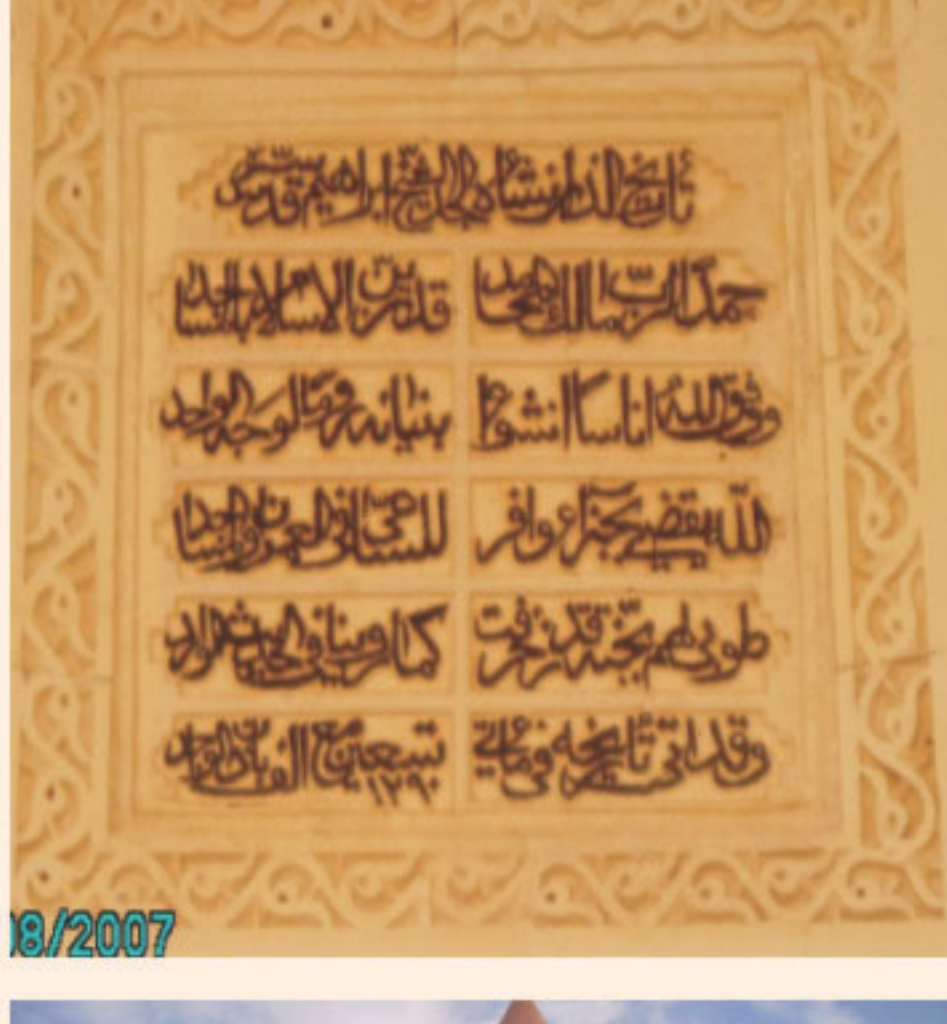 تاريخ الذي انشاه الحاج الشيخ ابراهيم قدس سره
حمدا لرب مالك قد زين الاسلام بالمساجد
وفق الله اناسا انشؤا بنيانه لوجه الواحد
الله يقضي بجزاء وافر للساعي في العمران والمساجد
طوبى لهم بجنة قد زخرفت كما روينا في الحديث الوارد
وقد اتى تاريخه في مائتي تسعين مع الف
١٢٩٠
08/2007